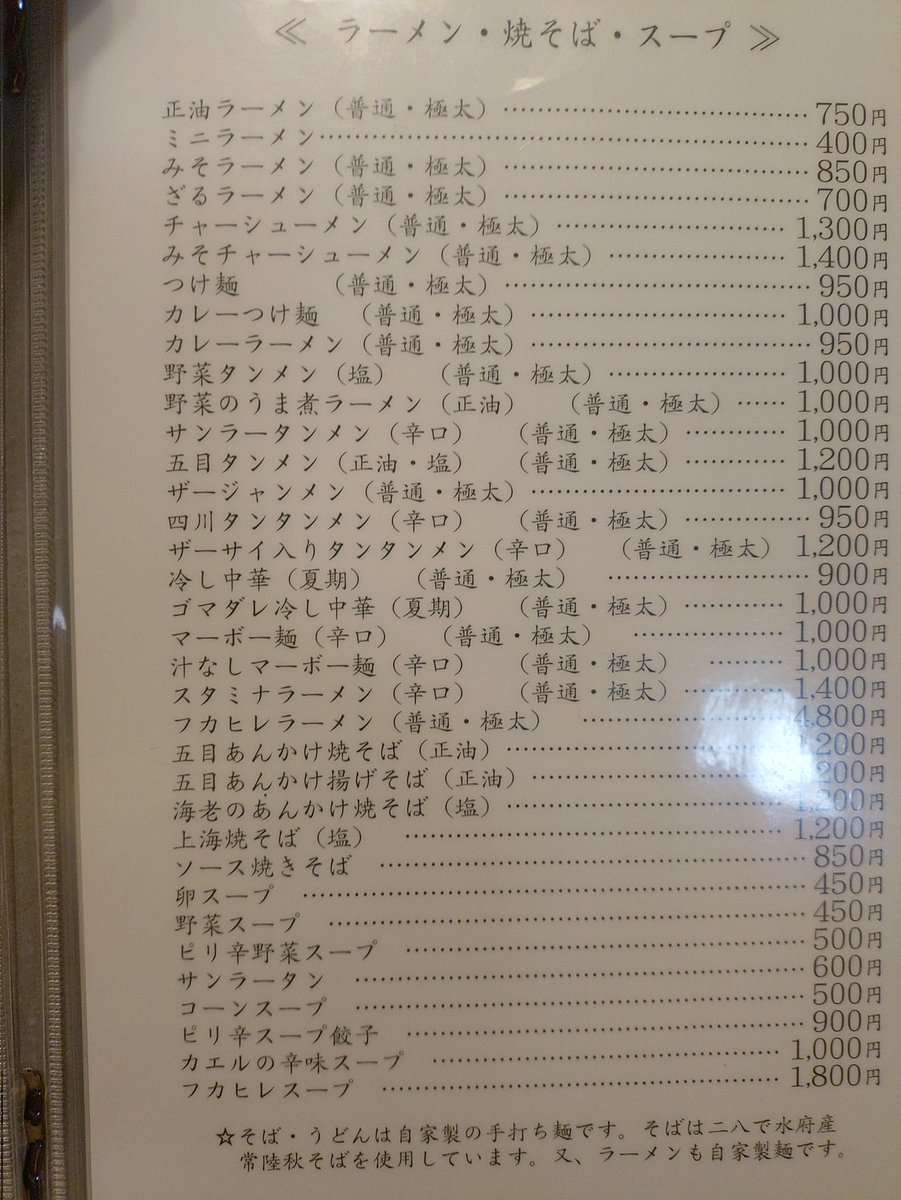 ≪ ラーメン・焼そば・スープ ≫
正油ラーメン（普通・極太）…………………………… 750円
ミニラーメン…………………………………………… 400円
みそラーメン（普通・極太）…………………………… 850円
ざるラーメン（普通・極太）…………………………… 700円
チャーシューメン（普通・極太）…………………… 1,300円
みそチャーシューメン（普通・極太）……………… 1,400円
つけ麺　　　（普通・極太）…………………………… 950円
カレーつけ麺　（普通・極太）……………………… 1,000円
カレーラーメン（普通・極太）………………………… 950円
野菜タンメン（塩）　（普通・極太）……………… 1,000円
野菜のうま煮ラーメン（正油）　（普通・極太）…… 1,000円
サンラータンメン（辛口）　（普通・極太）………… 1,000円
五目タンメン（正油・塩）　（普通・極太）………… 1,200円
ザージャンメン（普通・極太）……………………… 1,000円
四川タンタンメン（辛口）　（普通・極太）…………… 950円
ザーサイ入りタンタンメン（辛口）　（普通・極太） 1,200円
冷し中華（夏期）　（普通・極太）　………………… 900円
ゴマダレ冷し中華（夏期）　（普通・極太）………… 1,000円
マーボー麺（辛口）　（普通・極太）　…………… 1,000円
汁なしマーボー麺（辛口）　（普通・極太）　……… 1,000円
スタミナラーメン（辛口）　（普通・極太）………… 1,400円
フカヒレラーメン（普通・極太）　………………… 4,800円
五目あんかけ焼そば（正油）………………………… 1,200円
五目あんかけ揚げそば（正油）……………………… 1,200円
海老のあんかけ焼そば（塩）………………………… 1,200円
上海焼そば（塩）　………………………………… 1,200円
ソース焼きそば　……………………………………… 850円
卵スープ　……………………………………………… 450円
野菜スープ　…………………………………………… 450円
ピリ辛野菜スープ　…………………………………… 500円
サンラータン　………………………………………… 600円
コーンスープ　………………………………………… 500円
ピリ辛スープ餃子　…………………………………… 900円
カエルの辛味スープ　……………………………… 1,000円
フカヒレスープ　…………………………………… 1,800円
☆そば・うどんは自家製の手打ち麺です。そばは二八で水府産
常陸秋そばを使用しています。又、ラーメンも自家製麺です。